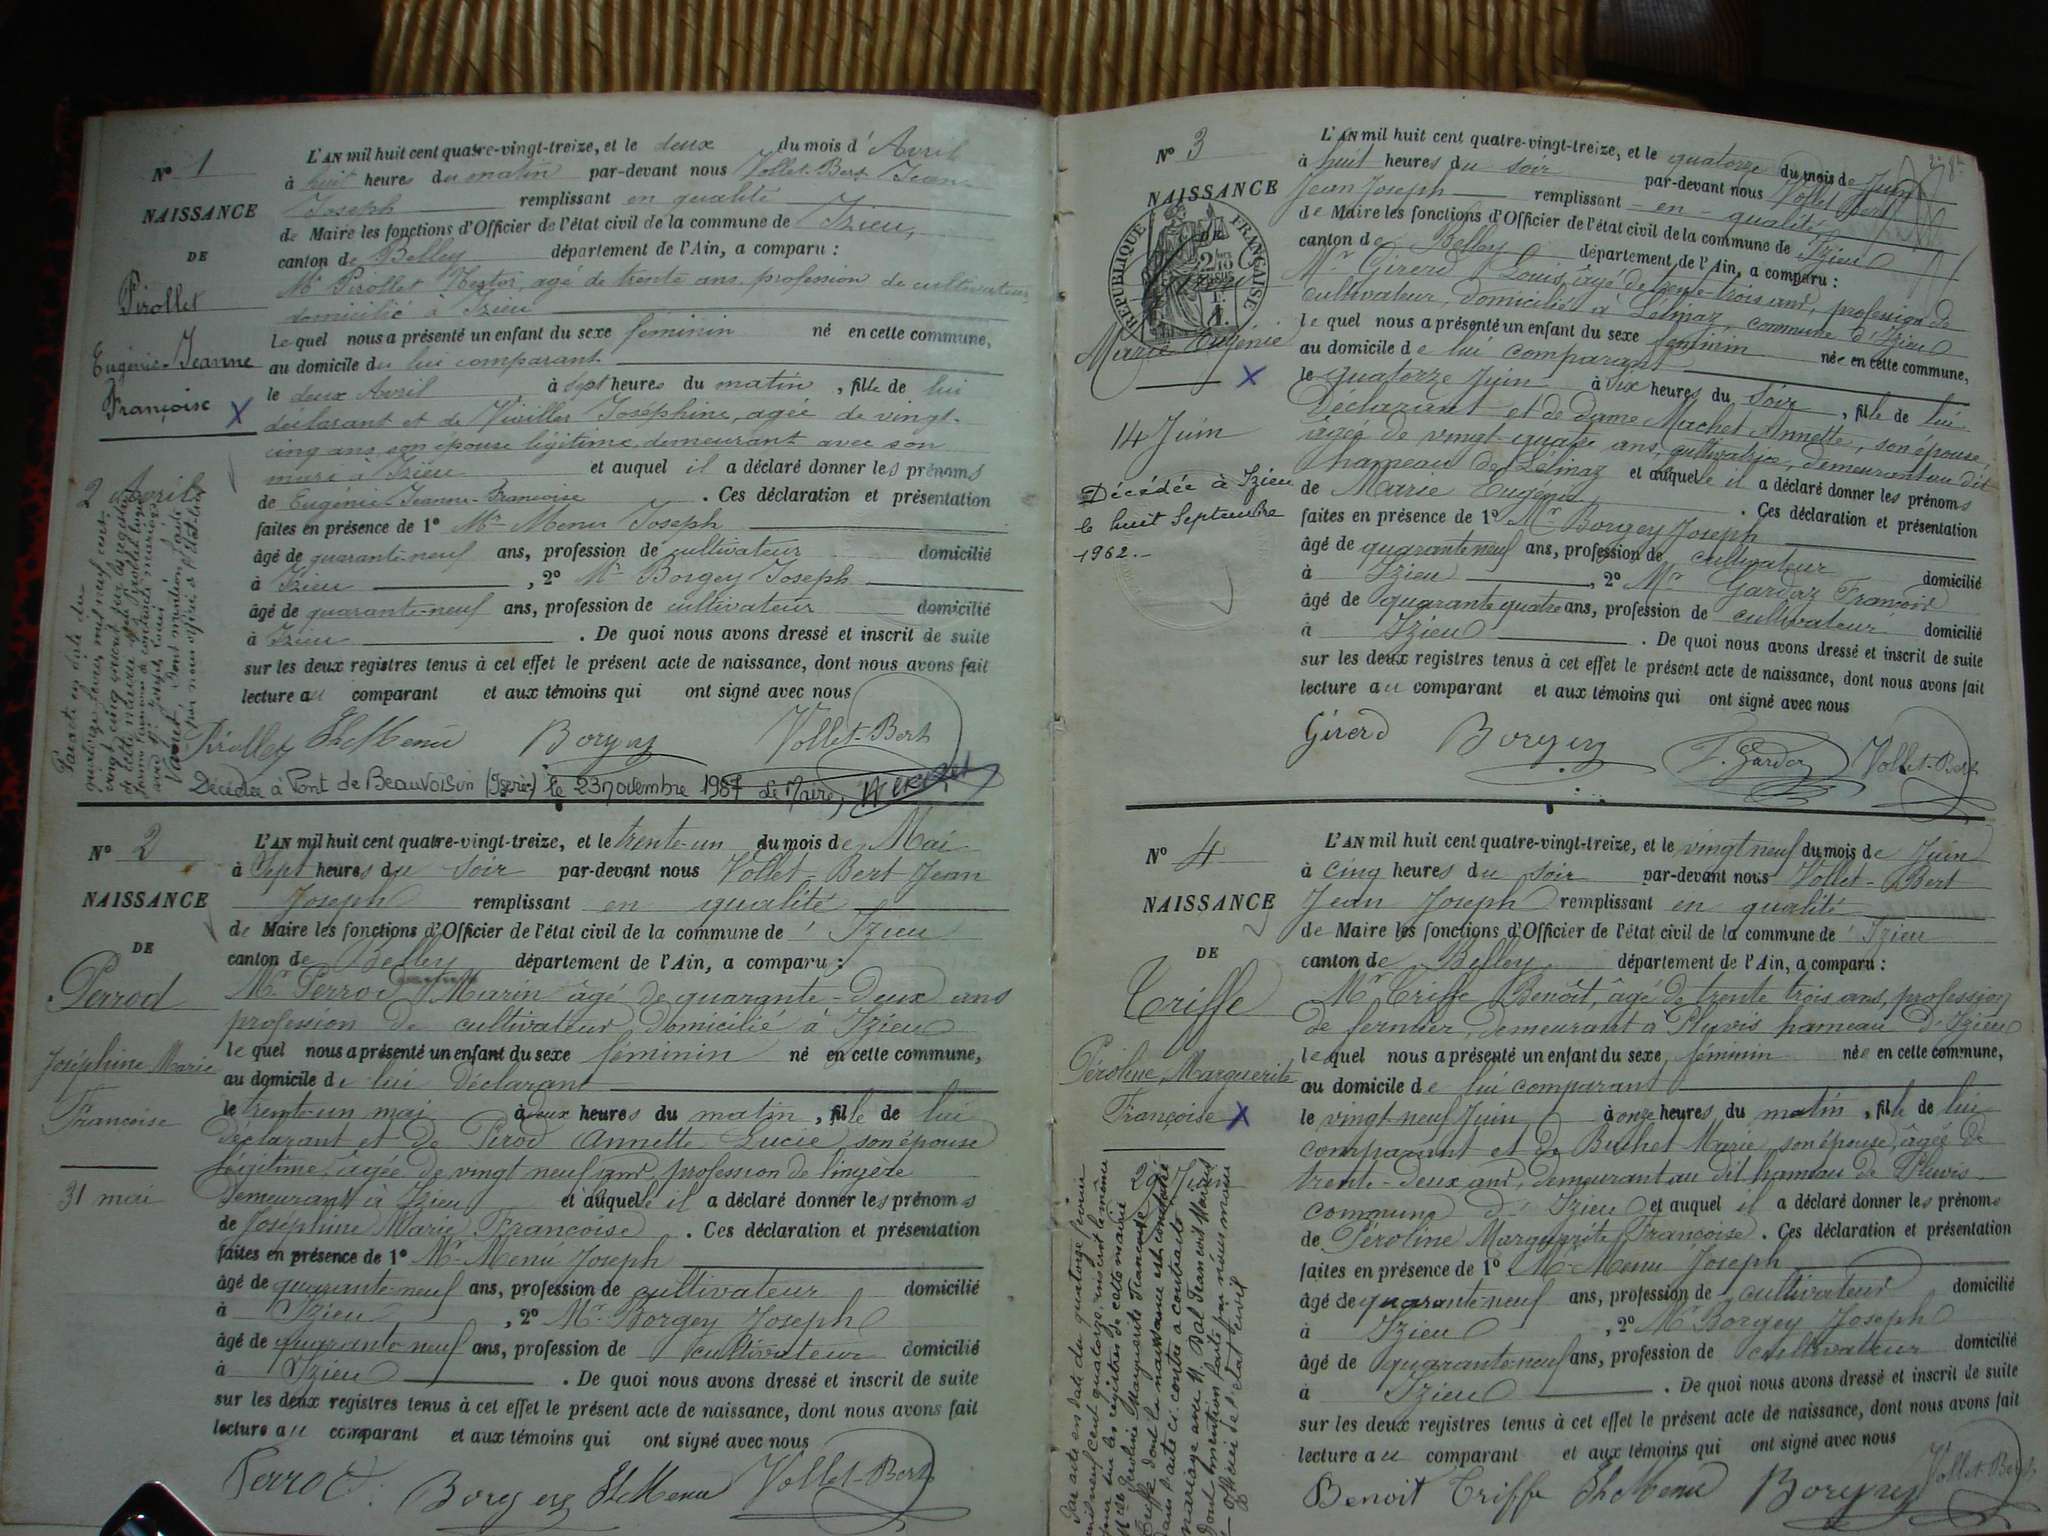 N° 1
NAISSANCE
DE
Pirollet
Eugénie-Jeanne
Françoise X
2 Avril
L'AN mil huit cent quatre-vingt-treize, et le deux du mois d'Avril
à huit heures du matin par-devant nous Vollet-Bert Jean-
Joseph remplissant en qualité
de Maire les fonctions d'Officier de l'état civil de la commune de Izieu,
canton de Belley département de l'Ain, a comparu :
Mr Pirollet Nestor, agé de trente ans, profession de cultivateur
domicilié à Izieu
Le quel nous a présenté un enfant du sexe féminin né en cette commune,
au domicile du lui comparant
le deux Avril à sept heures du matin, fille de lui
déclarant et de Joséphine, agée de vingt-
cinq ans, son épouse légitime, demeurant avec son
mari à Izieu et auquel il a déclaré donner les prénoms
de Eugénie Jeanne-Françoise. Ces déclaration et présentation
faites en présence de 1° Mr Menu Joseph
âgé de quarante-neuf ans, profession de cultivateur domicilié
à Izieu, 2° Mr Borgey Joseph
âgé de quarante-neuf ans, profession de cultivateur domicilié
à Izieu. De quoi nous avons dressé et inscrit de suite
sur les deux registres tenus à cet effet le présent acte de naissance, dont nous avons fait
lecture au comparant et aux témoins qui ont signé avec nous
Pirollet Menu Borgey Vollet-Bert
Décédée à Pont de Beauvoisin (Isère) le 23 novembre 1987 Le Maire,
N° 2
NAISSANCE
DE
Perrod
Joséphine Marie
Françoise
31 mai
L'AN mil huit cent quatre-vingt-treize, et le trente-un du mois de Mai
à Sept heures du soir par-devant nous Vollet-Bert Jean
Joseph remplissant en qualité
de Maire les fonctions d'Officier de l'état civil de la commune de Izieu
canton de Belley département de l'Ain, a comparu :
Mr Perrod Marin âgé de quarante-deux ans
profession de cultivateur domicilié à Izieu
le quel nous a présenté un enfant du sexe féminin né en cette commune,
au domicile de lui déclarant
le trente-un mai à deux heures du matin, fille de lui
déclarant et de Perod Annette Lucie, son épouse
légitime, âgée de vingt neuf ans, profession de lingère
demeurant à Izieu et auquel il a déclaré donner les prénoms
de Joséphine Marie Françoise. Ces déclaration et présentation
faites en présence de 1° Mr Menu Joseph
âgé de quarante-neuf ans, profession de cultivateur domicilié
à Izieu, 2° Mr Borgey Joseph
âgé de quarante-neuf ans, profession de cultivateur domicilié
à Izieu. De quoi nous avons dressé et inscrit de suite
sur les deux registres tenus à cet effet le présent acte de naissance, dont nous avons fait
lecture au comparant et aux témoins qui ont signé avec nous
Perrod Borgey Menu Vollet-Bert
N° 3
NAISSANCE
DE
REPUBLIQUE FRANÇAISE
Marie Eugénie
X
14 Juin
Décédée à Izieu
le huit Septembre
1962.-
L'AN mil huit cent quatre-vingt-treize, et le quatorze du mois de Juin
à huit heures du soir par-devant nous Vollet Bert
Jean Joseph remplissant en qualité
de Maire les fonctions d'Officier de l'état civil de la commune de Izieu
canton de Belley département de l'Ain, a comparu :
Mr Girerd Louis, âgé de trente-trois ans, profession de
cultivateur, domicilié à Lélinaz, commune d'Izieu
le quel nous a présenté un enfant du sexe féminin née en cette commune,
au domicile de lui comparant
le quatorze Juin à six heures du soir, fille de lui
déclarant et de dame Machet Annette, son épouse,
agée de vingt-quatre ans, cultivatrice, demeurant au dit
hameau de Lélinaz et auquel il a déclaré donner les prénoms
de Marie Eugénie. Ces déclaration et présentation
faites en présence de 1° Mr Borgey Joseph
âgé de quarante-neuf ans, profession de cultivateur domicilié
à Izieu, 2° Mr Gardaz François
âgé de quarante quatre ans, profession de cultivateur domicilié
à Izieu. De quoi nous avons dressé et inscrit de suite
sur les deux registres tenus à cet effet le présent acte de naissance, dont nous avons fait
lecture au comparant et aux témoins qui ont signé avec nous
Girerd Borgey F. Gardaz Vollet-Bert
N° 4
NAISSANCE
DE
Triffe
Péroline, Marguerite
Françoise X
29 Juin
L'AN mil huit cent quatre-vingt-treize, et le vingt neuf du mois de Juin
à cinq heures du soir par-devant nous Vollet-Bert
Jean Joseph remplissant en qualité
de Maire les fonctions d'Officier de l'état civil de la commune de Izieu
canton de Belley département de l'Ain, a comparu :
Mr Triffe Benoit, âgé de trente trois ans, profession
de fermier, demeurant à Pluvis hameau d'Izieu
le quel nous a présenté un enfant du sexe féminin née en cette commune,
au domicile de lui comparant
le vingt-neuf Juin à onze heures du matin, fille de lui
comparant et de Buthet Marie son épouse, âgée de
trente-deux ans, demeurant au dit hameau de Pluvis
commune d'Izieu et auquel il a déclaré donner les prénoms
de Péroline Marguerite Françoise. Ces déclaration et présentation
faites en présence de 1° Mr Menu Joseph
âgé de quarante-neuf ans, profession de cultivateur domicilié
à Izieu, 2° Mr Borgey Joseph
âgé de quarante-neuf ans, profession de cultivateur domicilié
à Izieu. De quoi nous avons dressé et inscrit de suite
sur les deux registres tenus à cet effet le présent acte de naissance, dont nous avons fait
lecture au comparant et aux témoins qui ont signé avec nous
Benoit Triffe Menu Borgey Vollet-Bert